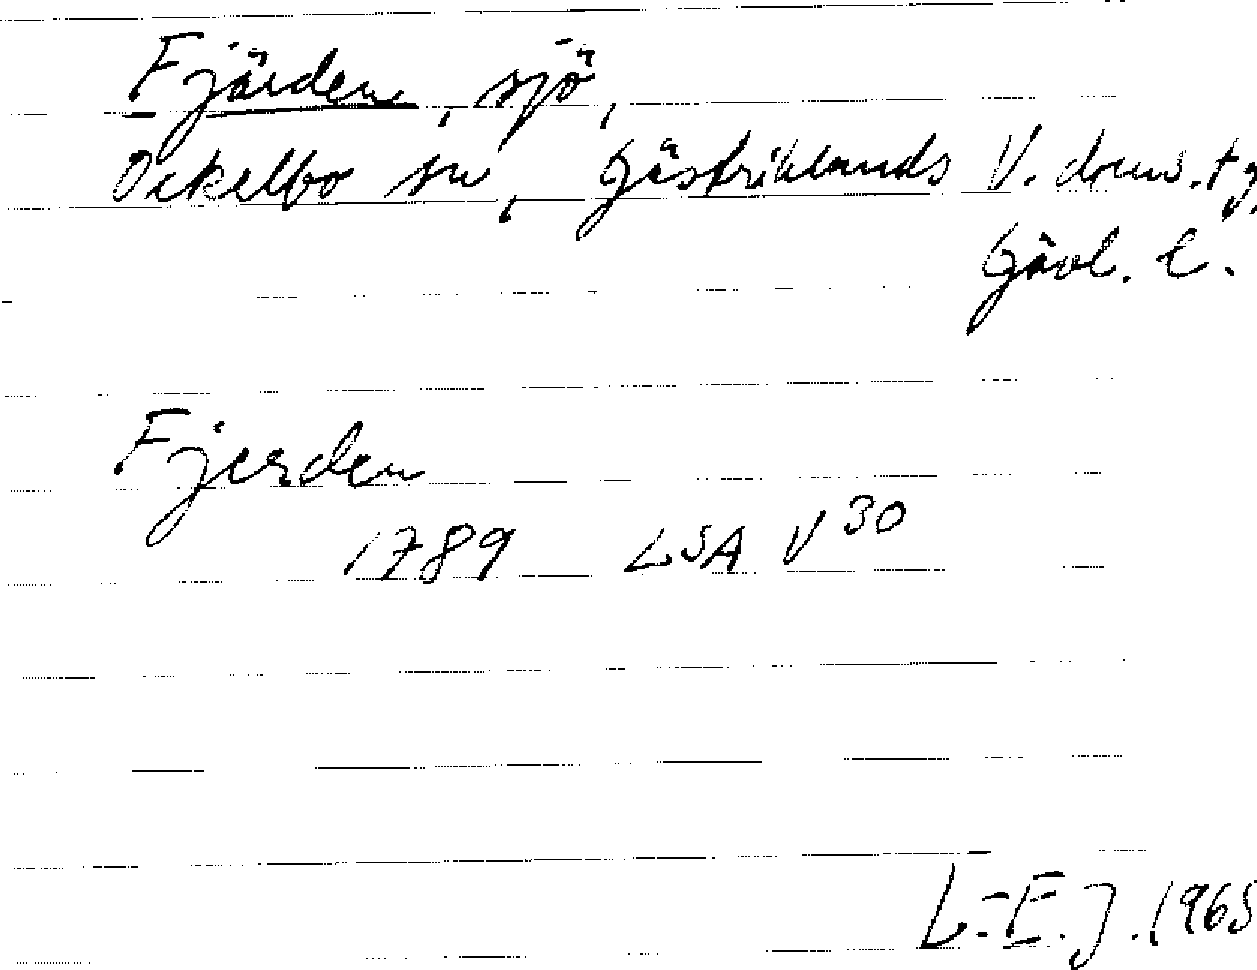 Fjärden, sjö,
Ockelbo sn, Gästriklands V. doms. tg,
Gävl. l.
Fjerden
1789 LSA V 30
L-E. J. 1965